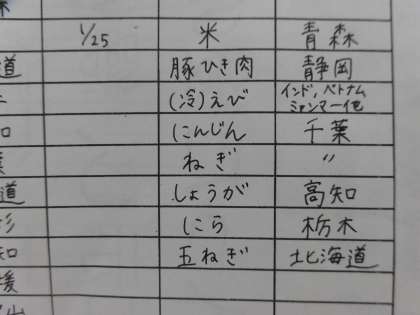 1/25 米 青森
道 豚ひき肉 静岡
(冷)えび インド,ベトナム
ミャンマー他
知 にんじん 千葉
ねぎ 〃
道 しょうが 高知
にら 栃木
知 玉ねぎ 北海道
媛